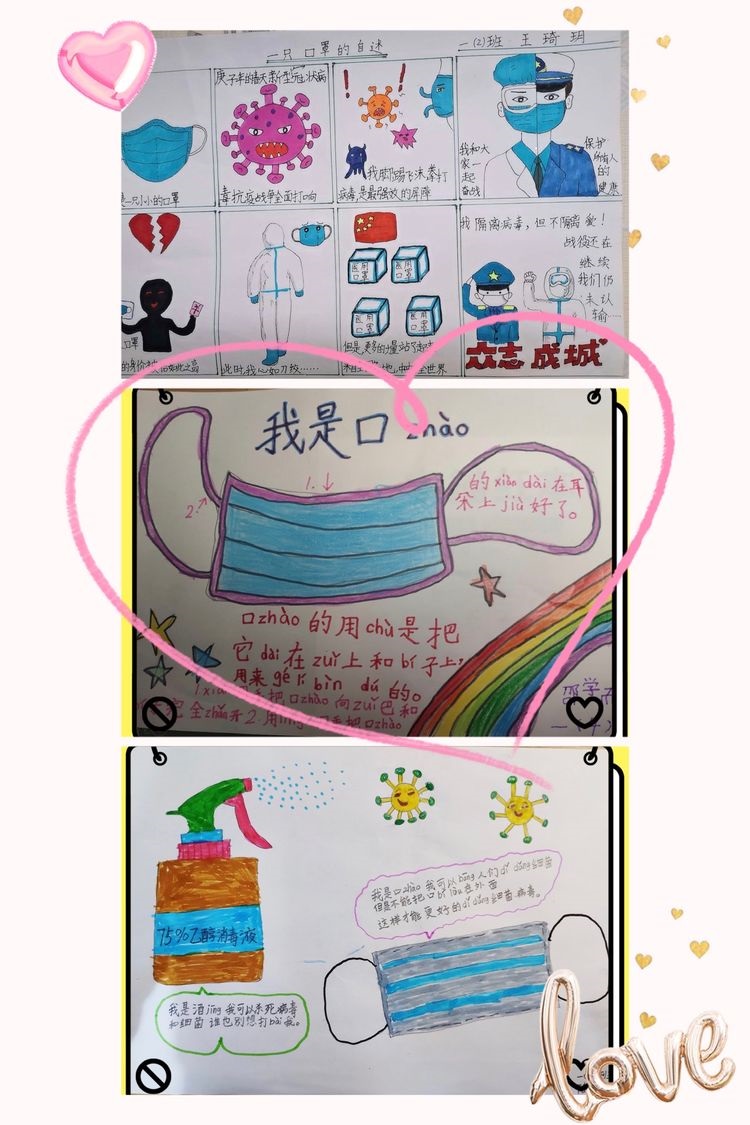 一只口罩的自述
一(2)班 王琦玥
一只小小的口罩
庚子年的春天新型冠状病
毒抗疫战争全面打响
我脚踢飞沫拳打
病毒是最强效的屏障
我和大
家一
起
奋战
保护
所有人
的
健康
口罩
此时我心如刀绞……
医用
口罩
医用
口罩
医用
口罩
医用
口罩
但是,更多的力量站了起来
我隔离病毒,但不隔离爱!
战役还在
继续
我们仍
未认
输……
众志成城
我是口zhào
1.
2.
的xiàn dài在耳
朵上jiù好了。
口zhào的用chù是把
它dài在zuǐ上和bí子上,
用来gé lí bìn dú的。
把口zhào向zuǐ巴和
全zhǎn开2.用
75%乙醇消毒液
我是酒jīng我可以杀死病毒
和细菌谁也别想打bài我。
我是口zhào我可以bāng人们dǐ dǎng细菌
但是不能把口bí lòu在外面
这样才能更好的dǐ dǎng细菌病毒。
love